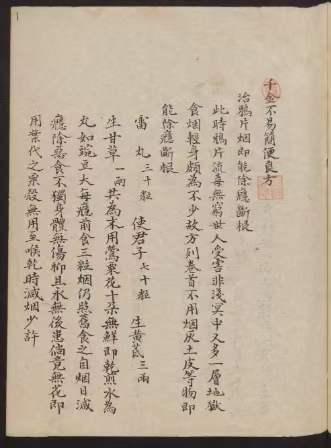 千金不易簡便良方
治鴉片烟即能除癮斷根
此時鴉片流毒無窮世人受害非淺冥中又多一層地獄
食烟輕身頗為不少故方列卷首不用烟灰土皮等物即
能除癮斷根
雷丸三十粒 使君子六十粒 生黃芪三兩
生甘草一兩 共為末用鶯粟花十朵無鮮即乾煎水為
丸如豌豆大每癮前食三粒烟仍照舊食之自烟日減
癮除惡食不獨身體無傷抑且永無後患倘竟無花即
用葉代之粟殼無用至喉乾時減烟少許